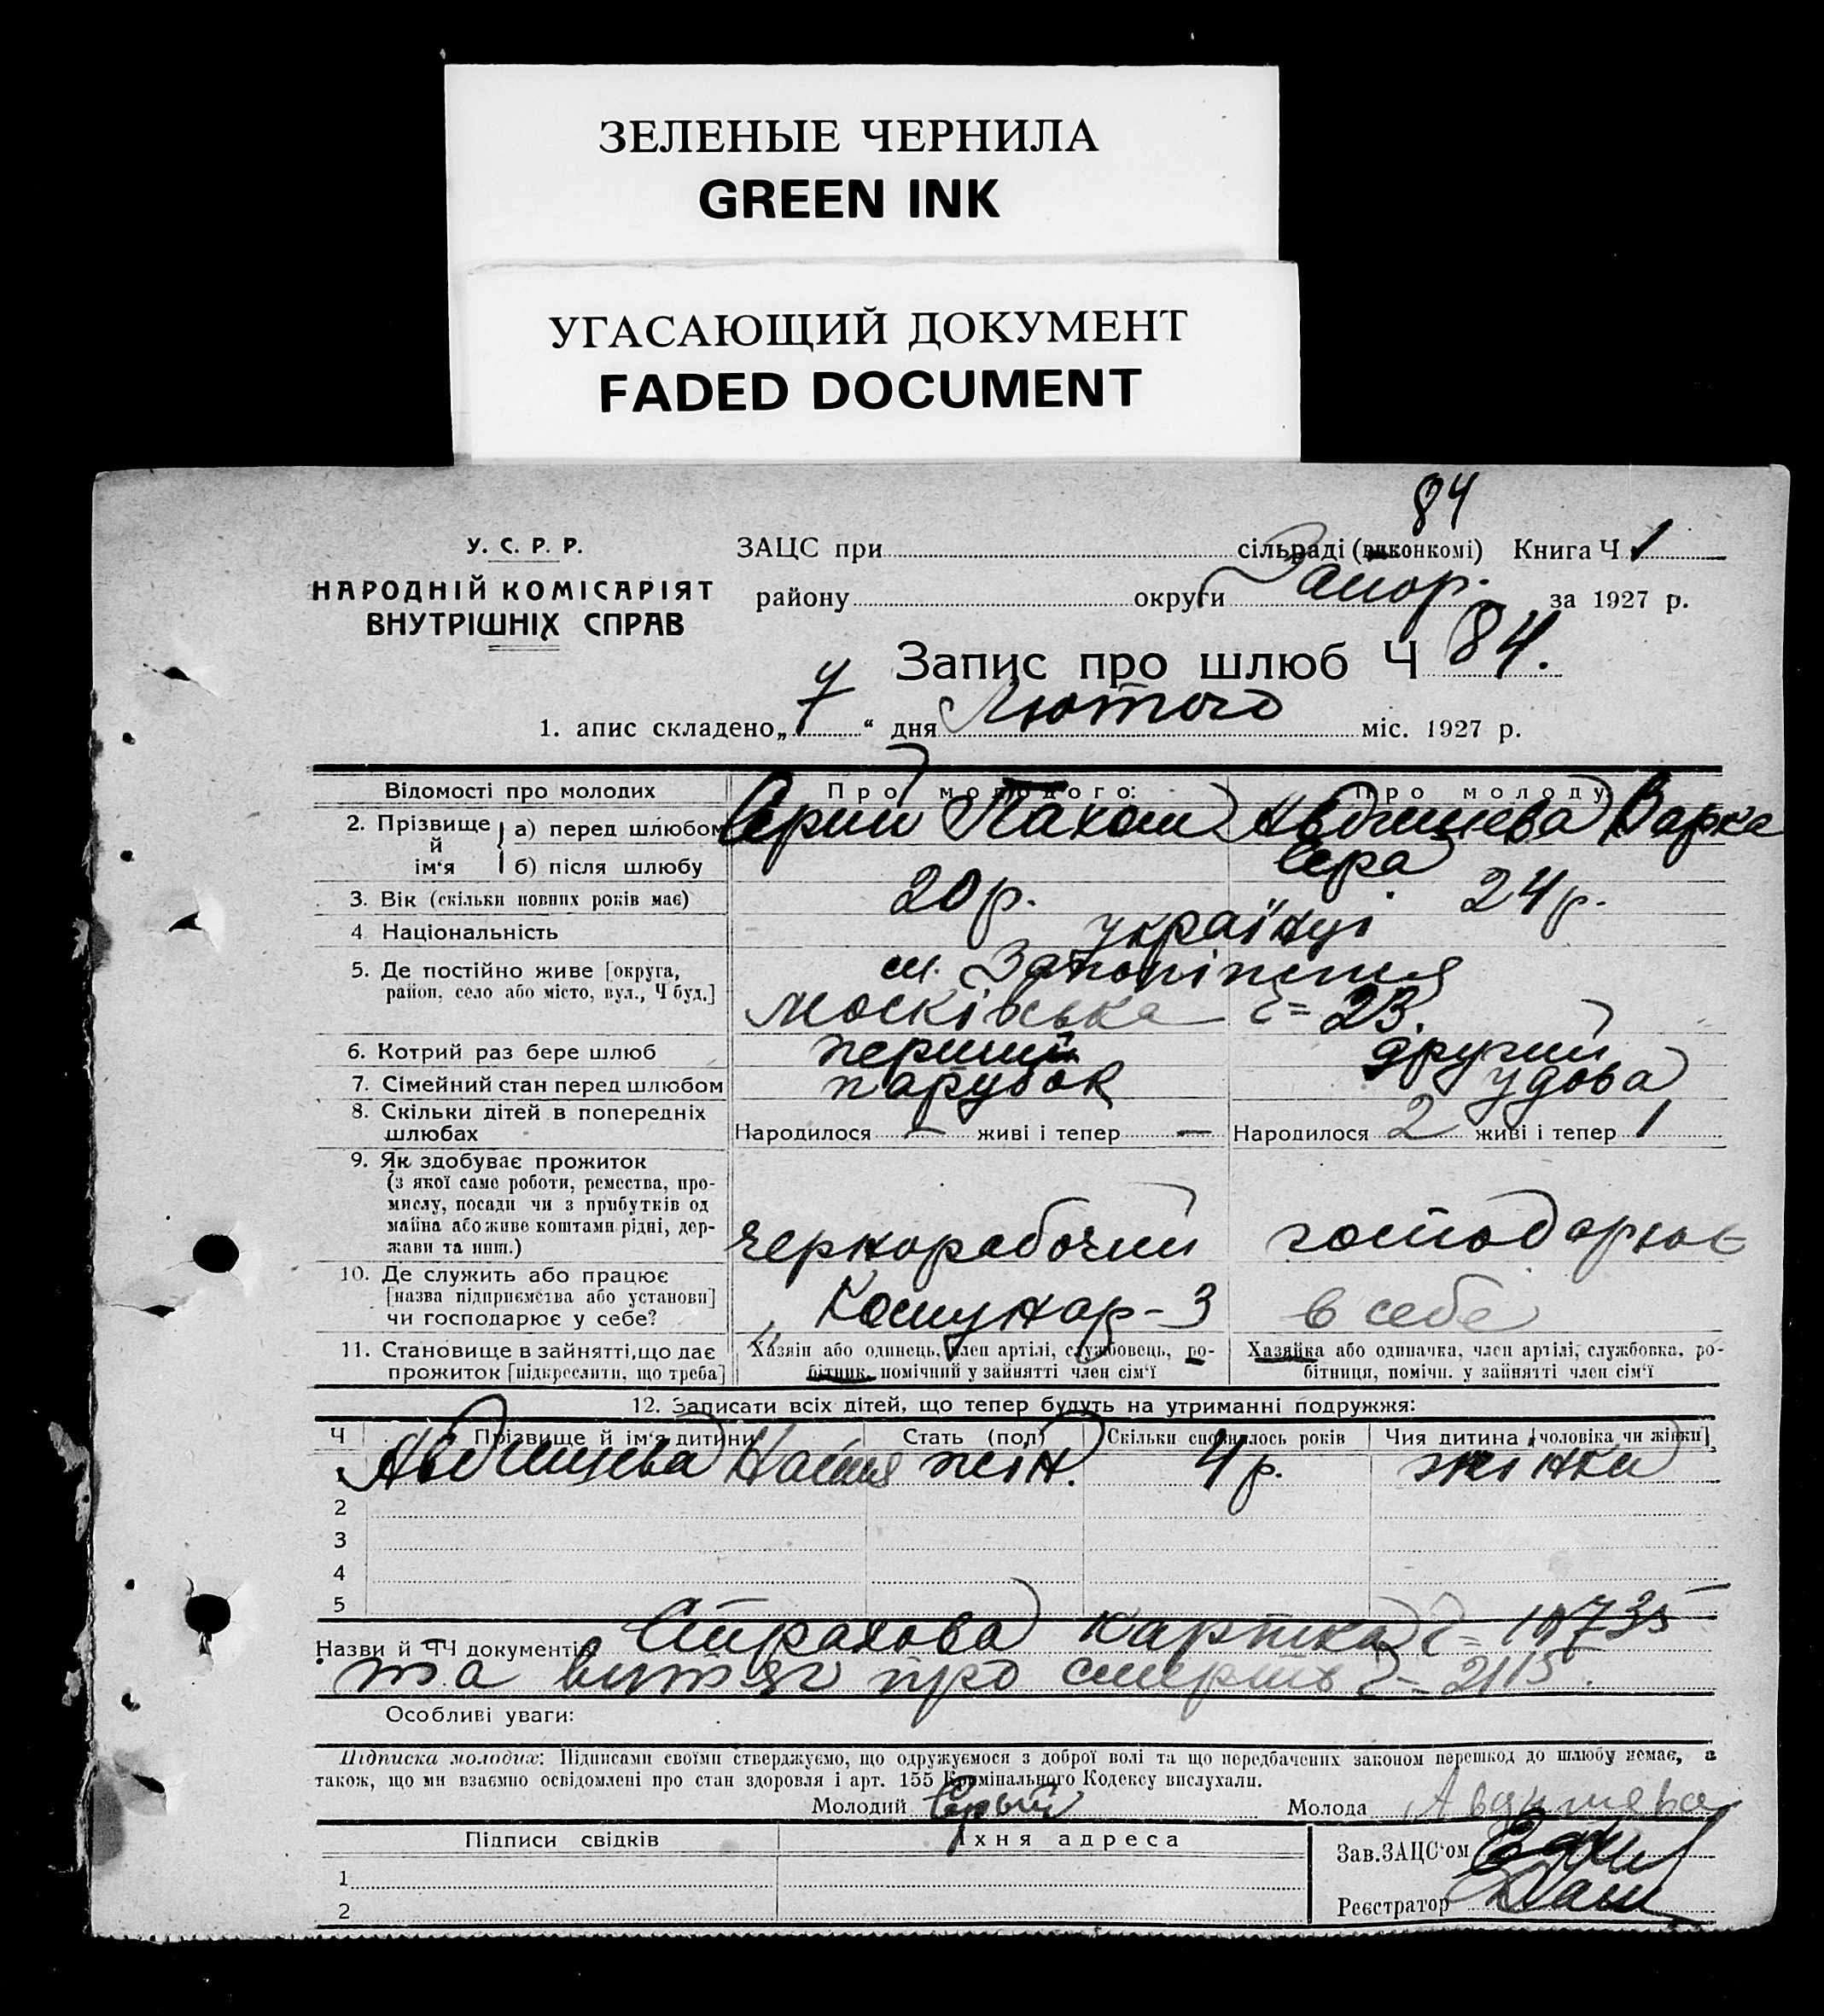 ЗЕЛЕНЫЕ ЧЕРНИЛА
GREEN INK
УГАСАЮЩИЙ ДОКУМЕНТ
FADED DOCUMENT
84
У. С. Р. Р.
НАРОДНІЙ КОМІСАРІЯТ
ВНУТРІШНІХ СПРАВ
ЗАЦС при сільраді (виконкомі) Книга Ч 1
району округи Запор. за 1927 р.
Запис про шлюб Ч 84.
1. апис складено „7“ дня Лютого міс. 1927 р.
Відомості про молодих Про молодого: Про молоду
2. Прізвище й ім‘я а) перед шлюбом Серий Пахом Авдишева Варка
б) після шлюбу Сера
3. Вік (скільки повних років має) 20 р. 24 р.
4. Національність українці
5. Де постійно живе [округа, м. Запоріжжя
район, село або місто, вул., Ч буд.] Московська 23.
6. Котрий раз бере шлюб перший другий
7. Сімейний стан перед шлюбом парубок удова
8. Скільки дітей в попередніх
шлюбах Народилося — живі і тепер — Народилося 2 живі і тепер 1
9. Як здобуває прожиток
(з якої саме роботи, ремества, про-
мислу, посади чи з прибутків од
майна або живе коштами рідні, дер-
жави та инш.) чернорабочий господарює
10. Де служить або працює
[назва підприємства або установи] Комунар-3 в себе
чи господарює у себе?
11. Становище в зайнятті, що дає Хазяін або одинець, член артілі, службовець, ро- Хазяйка або одиначка, член артілі, службовка, ро-
прожиток [підкреслити, що треба] бітник, помічний у зайнятті член сім‘ї бітниця, помічн. у зайнятті член сім‘ї
12. Записати всіх дітей, що тепер будуть на утриманні подружжя:
Ч Прізвище й ім‘я дитини Стать (пол) Скільки сповнилось років Чия дитина [чоловіка чи жінки]
1 Авдишева Настя жін. 4 р. жінки
2
3
4
5
Назви й ЧЧ документів Страхова картка
та витяг про смерть 2115.
Особливі уваги:
Підписка молодих: Підписами своїми стверджуємо, що одружуємося з доброї волі та що передбачених законом перешкод до шлюбу немає, а
також, що ми взаємно освідомлені про стан здоровля і арт. 155 Кримінального Кодексу вислухали.
Молодий Серый Молода
Підписи свідків Їхня адреса Зав. ЗАЦС‘ом
1
2 Реєстратор